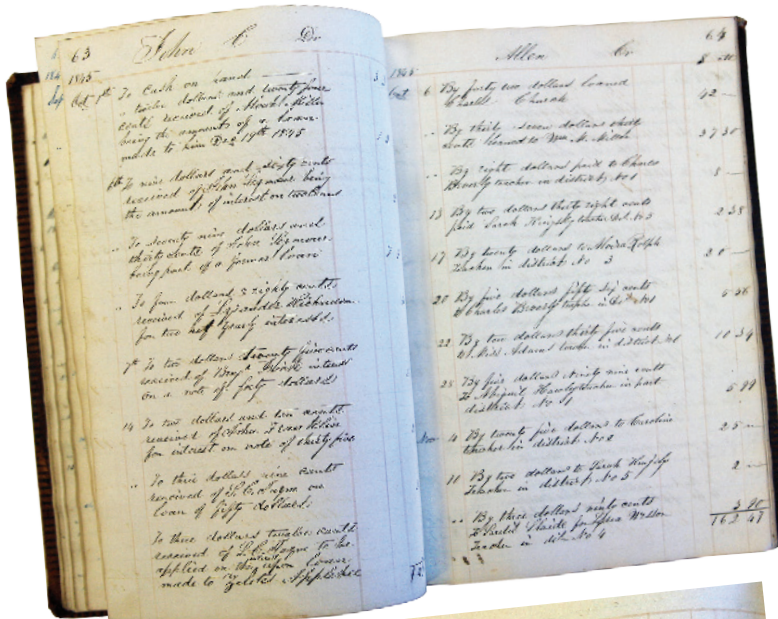 63 John C Dr
1845
Oct 1st To Cash on hand
" twelve dollars and twenty four
cents received of Miller
being the amount of a loan
made to him Dec 19th 1845
6th To nine dollars and sixty cents
received of John Seymour being
the amount of interest on two loans
" To seventy nine dollars and
thirty cents of John Seymour
being part of a former loan
" To four dollars & eighty cents
received of
for two yearly interests.
7th To two dollars seventy five cents
received of Benj interest
on a note of forty dollars
14 To two dollars and ten cents
received of John
for interest on note of thirty five
" To three dollars nine cents
received of L. C. on
loan of fifty dollars
To three dollars twelve cents
received of L. C. to be
applied on the interest upon
made to
64
Allen Cr
1845
Oct 6 By forty two dollars loaned
Charles Church 42 —
" By thirty seven dollars thirty
cents loaned to Wm M. 37 30
" By eight dollars paid to Charles
Beverly teacher in district No 1 8 —
13 By two dollars thirty eight cents
paid Sarah Kingsly teacher Dist. No 5 2 38
17 By twenty dollars to Rolph
Teacher in district No 3 20 —
20 By five dollars fifty six cents
to Charles Beverly teacher in No 1 5 56
22 By ten dollars thirty four cents
to Miss Adams teacher in district No 10 34
25 By five dollars Ninety nine cents
To Abigail Hawly teacher in part
district No 5 99
Nov 4 By twenty five dollars to Caroline
teacher in district No 2 25 —
10 By two dollars to Sarah Kingsly
teacher in district No 5 2 —
" By three dollars ninty cents
to for
Teacher in dist. No 4 3 90
162 47